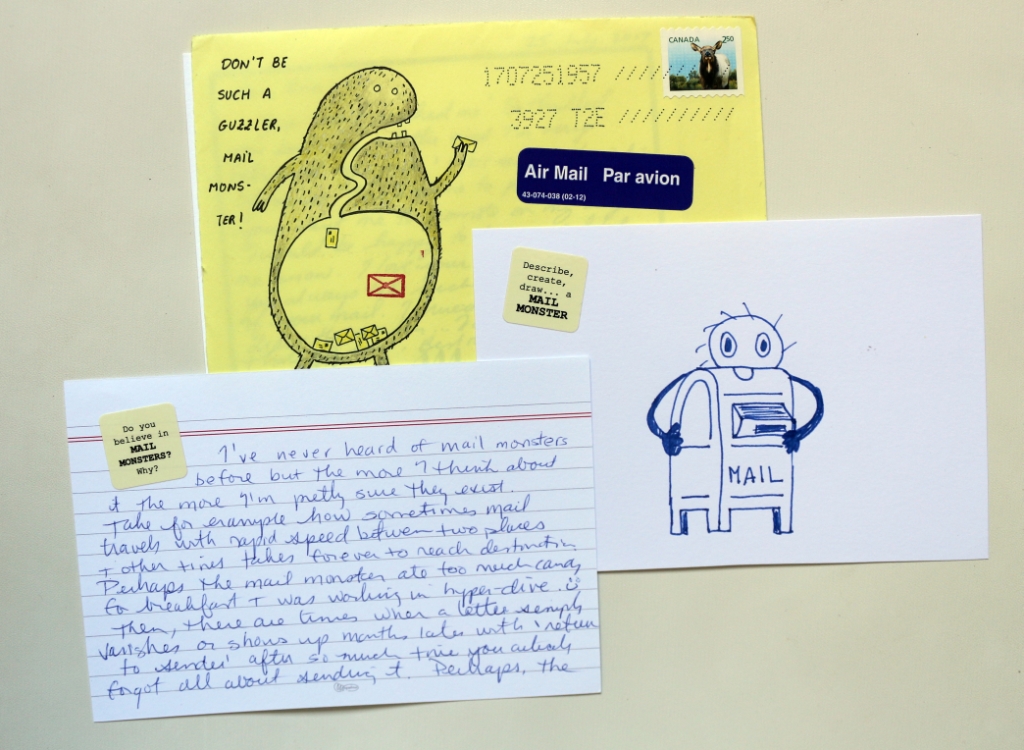 DON'T BE
SUCH A
GUZZLER,
MAIL
MONS-
TER!
CANADA 250
1707251957 //////
3927 T2E //////////
Air Mail Par avion
43-074-038 (02-12)
Describe,
create,
draw... a
MAIL
MONSTER
MAIL
Do you
believe in
MAIL
MONSTERS?
Why?
I've never heard of mail monsters
before but the more I think about
it the more I'm pretty sure they exist.
Take for example how sometimes mail
travels with rapid speed between two places
+ other times takes forever to reach destination
Perhaps the mail monster ate too much candy
for breakfast + was working in hyper-drive.
Then, there are times when a letter simply
vanishes or shows up months later with 'return
to sender' after so much time you actually
forgot all about sending it. Perhaps, the